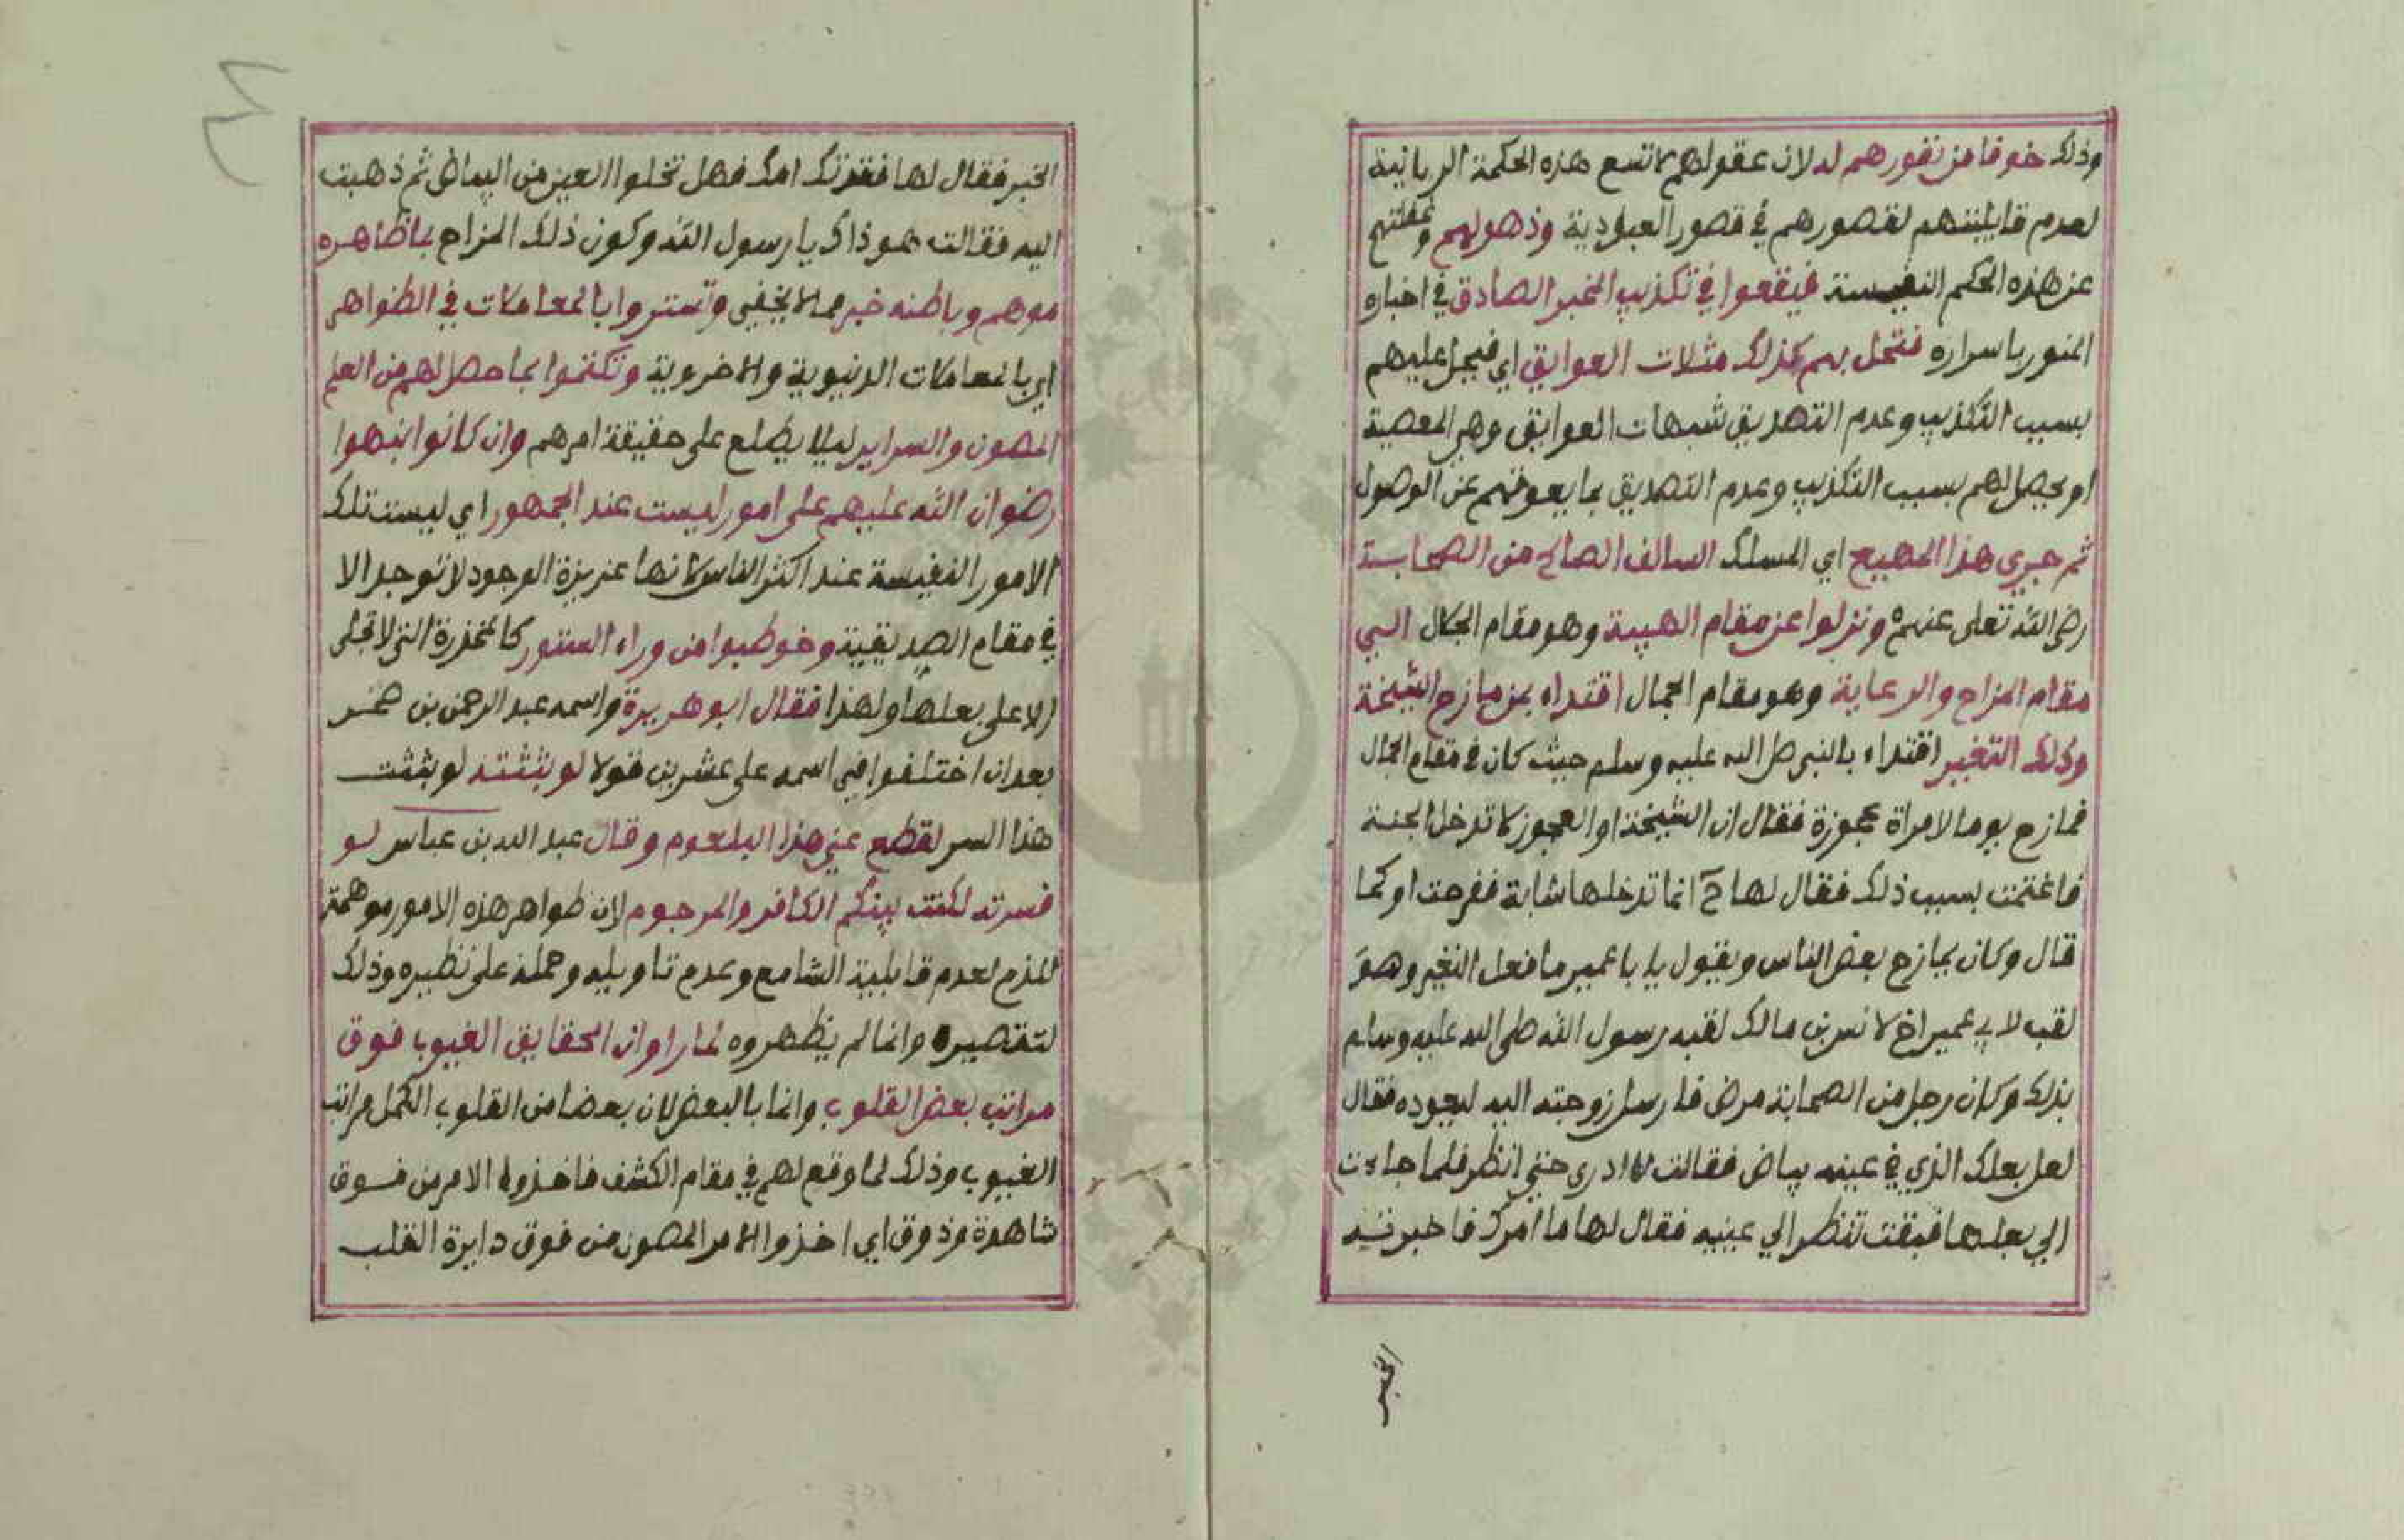 وذلك خوفا من نفورهم له لان عقولهم لا تسع هذه الحكمة الربانية
لعدم قابليتهم لقصورهم في قصور العبودية وذهولهم وغفلتهم
عن هذه الحكم النفيسة فيقعوا في تكذيب المخبر الصادق في اخباره
المنور باسراره فتحل بهم كذلك مثلات العوايق اي فيحل عليهم
بسبب التكذيب وعدم التصديق شبهات العوايق وهي المعصية
او يحصل لهم بسبب التكذيب وعدم التصديق بما يعوقهم عن الوصول
ثم جرى هذا المهيع اي المسلك السالف الصالح من الصحابة
رضى الله تعلى عنهم ونزلوا عن مقام الهيبة وهو مقام الجلال الى
مقام المزاح والرعاية وهو مقام الجمال اقتداء بمن مازح الشيخة
وذلك النغير اقتداء بالنبي صلى الله عليه وسلم حيث كان في مقام الجمال
فمازح يوما لامراة عجوزة فقال ان الشيخة او العجوز لا تدخل الجنة
فاغتمت بسبب ذلك فقال لها ح انما تدخلها شابة ففرحت او كما
قال وكان يمازح بعض الناس ويقول يا با عمير ما فعل النغير وهو
لقب لابي عمير اخ لانس بن مالك لقبه رسول الله صلى الله عليه وسلم
بذلك وكان رجل من الصحابة مرض فارسل زوجته اليه ليعوده فقال
لعل بعلك الذي في عينه بياض فقالت لا ادرى حتى انظر فلما جاءت
الي بعلها فبقت تنظر الي عينيه فقال لها ما امرك فاخبرته
الخبر
الخبر فقال لها فقدتك امك فهل تخلوا العين من البياض ثم ذهبت
اليه فقالت هو ذاك يا رسول الله وكون ذلك المزاح بما ظاهره
موهم وباطنه خبر مما لا يخفى وتستروا بالمعاملات في الظواهر
اي بالمعاملات الدنيوية والاخروية وتكتموا بما حصل لهم من العلم
المصون والسراير ليلا يطلع على حقيقة امرهم وان كانوا ابنهوا
رضوان الله عليهم على امور ليست عند الجمهور اي ليست تلك
الامور النفيسة عند اكثر الناس لانها عزيزة الوجود لا توجد الا
في مقام الصديقية وخوطبوا من وراء الستور كالمخدرة التي لا تجلى
الا على بعلها ولهذا فقال ابو هريرة واسمه عبد الرحمن بن صخر
بعد ان اختلفوا في اسمه على عشرين قولا لو بثثته لو بثثت
هذا السر لقطع عني هذا البلعوم وقال عبد الله بن عباس لو
فسرته لكنت بينكم الكافر والمرجوم لان ظواهر هذه الامور موهمة
للذم لعدم قابلية السامع وعدم تاويله وحمله على نظيره وذلك
لتقصيره وانما لم يظهروه لما راوا ان الحقايق الغيوب فوق
مراتب بعض القلوب وانما بالبعض لان بعضا من القلوب الكمل مراتب
الغيوب وذلك لما وقع لهم في مقام الكشف فاخذوا الامر من فوق
شاهدة وذوق اي اخذوا الامر المصون من فوق دايرة القلب